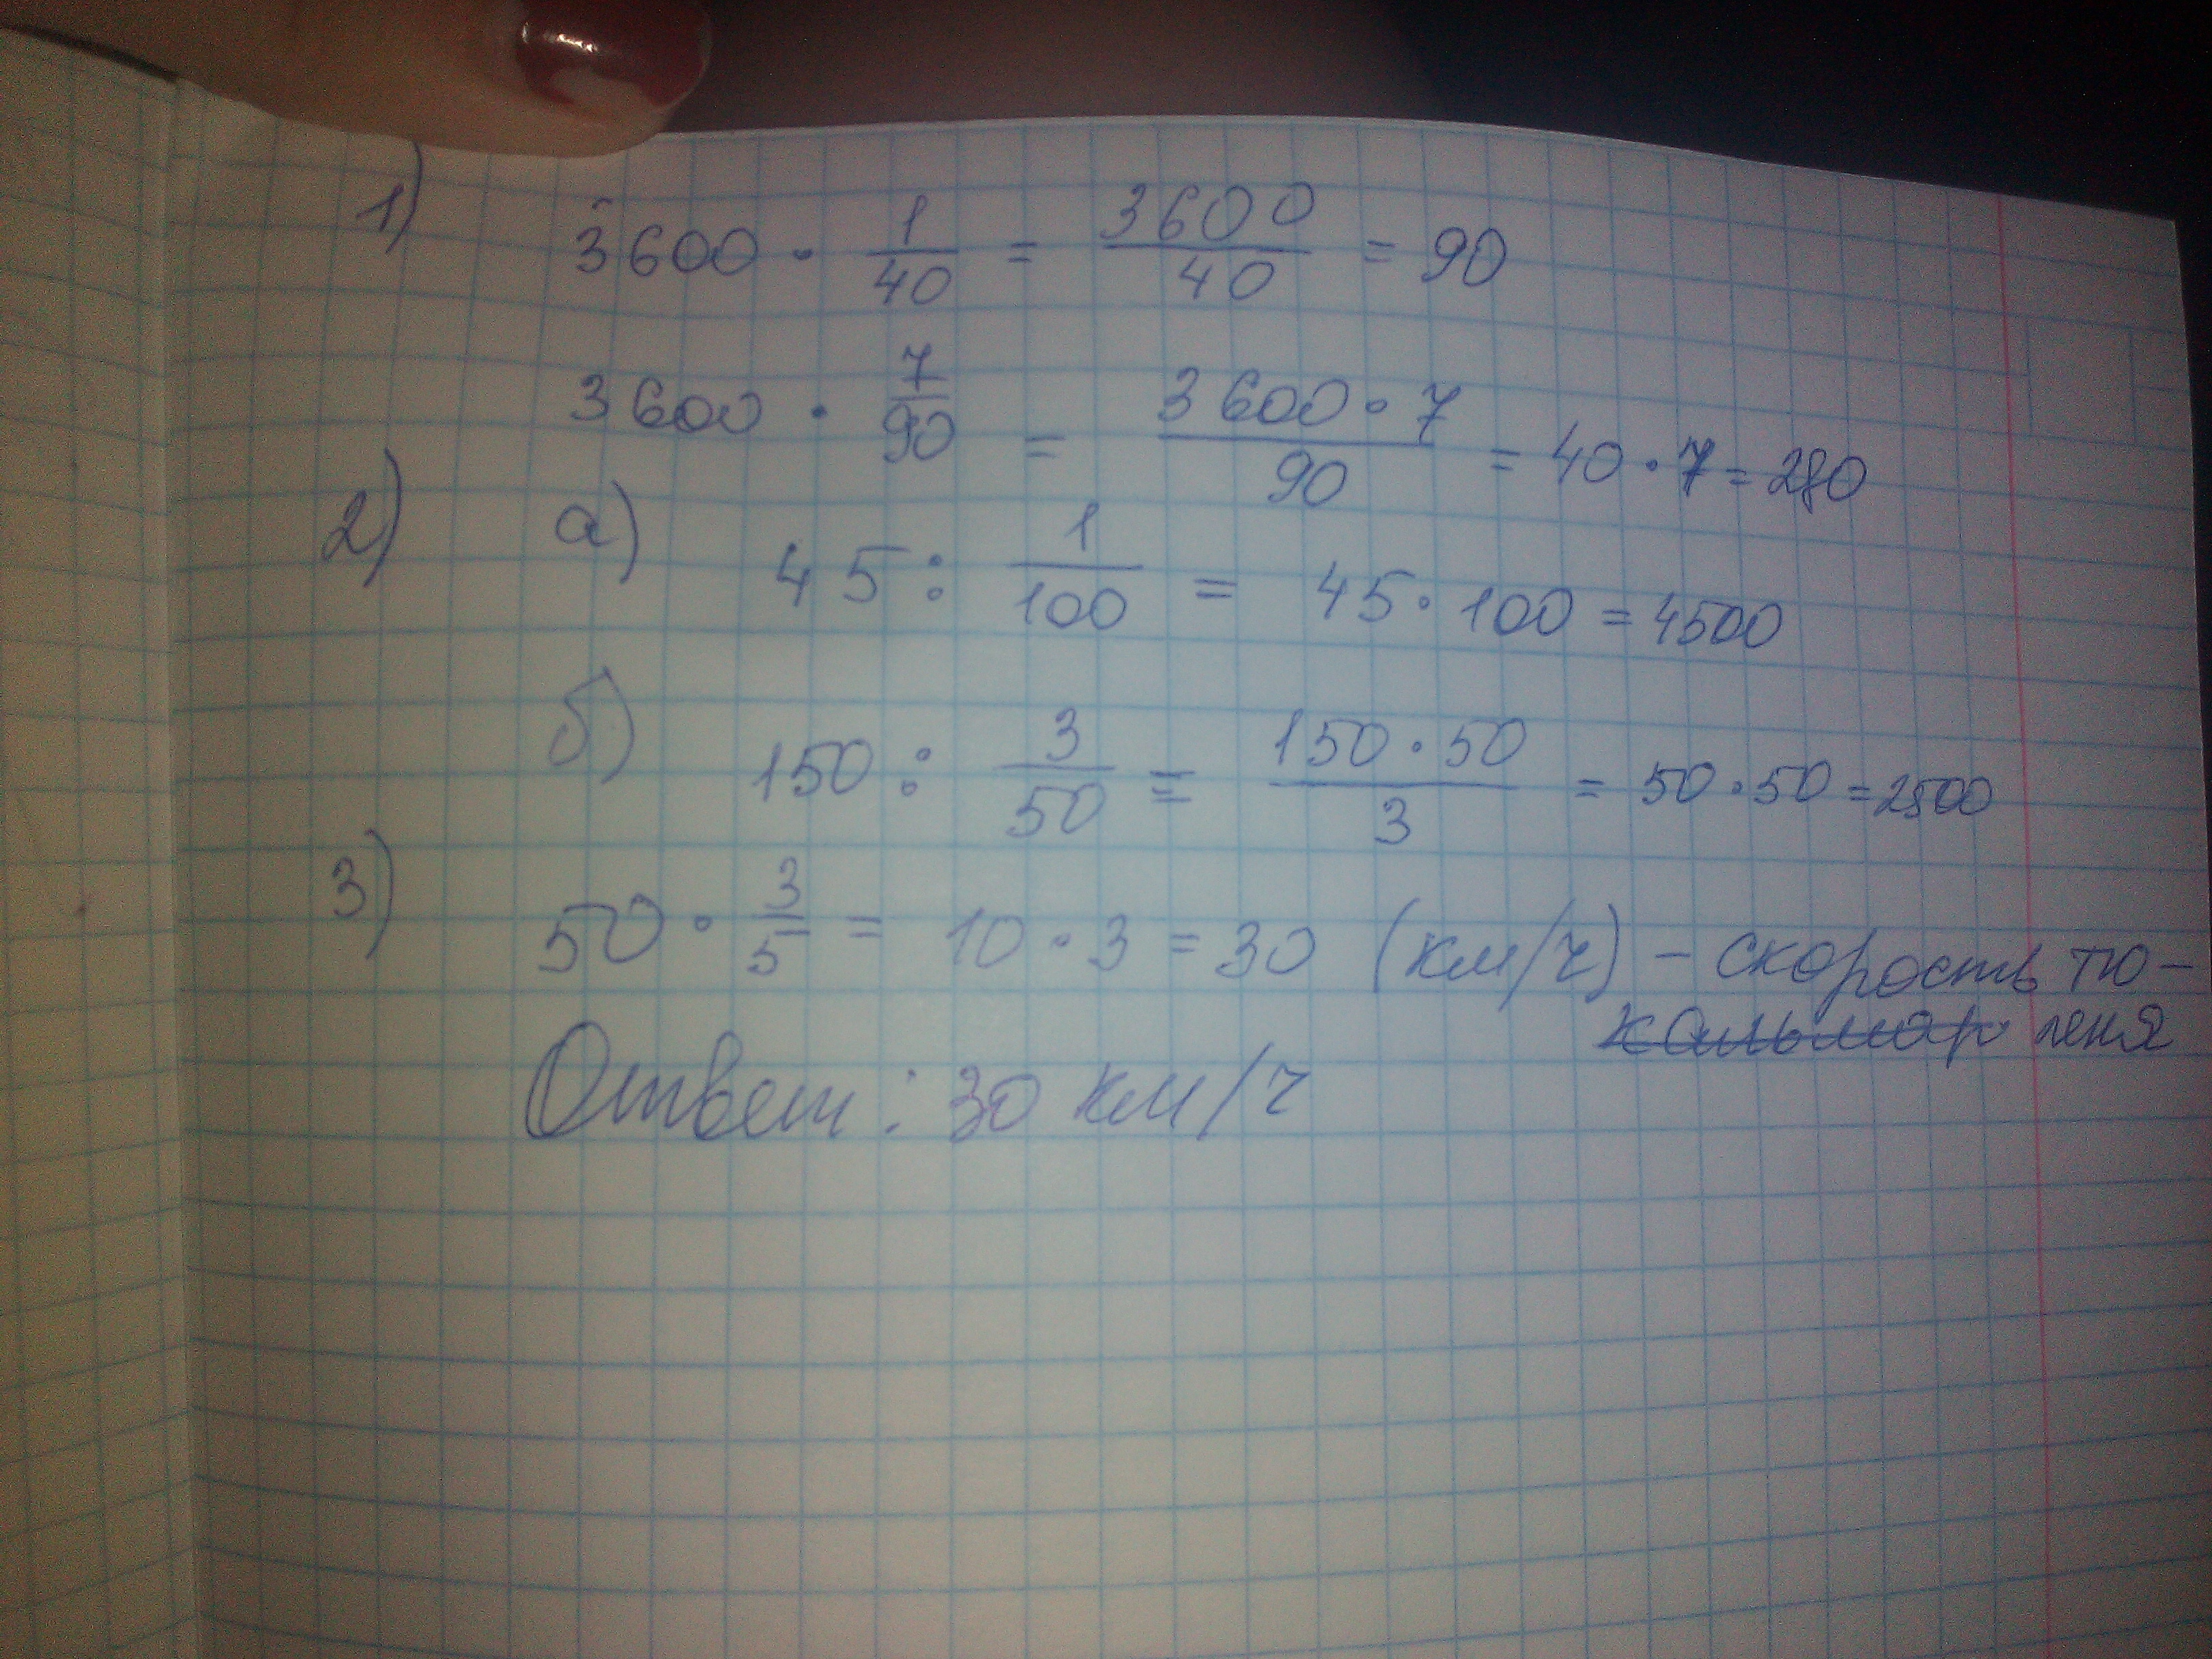 1) 3600 · 1/40 = 3600/40 = 90
3600 · 7/90 = 3600 · 7/90 = 40 · 7 = 280
2) а) 45 : 1/100 = 45 · 100 = 4500
б) 150 : 3/50 = 150 · 50/3 = 50 · 50 = 2500
3) 50 · 3/5 = 10 · 3 = 30 (км/ч) – скорость тю-
кальмар леня
Ответ: 30 км/ч